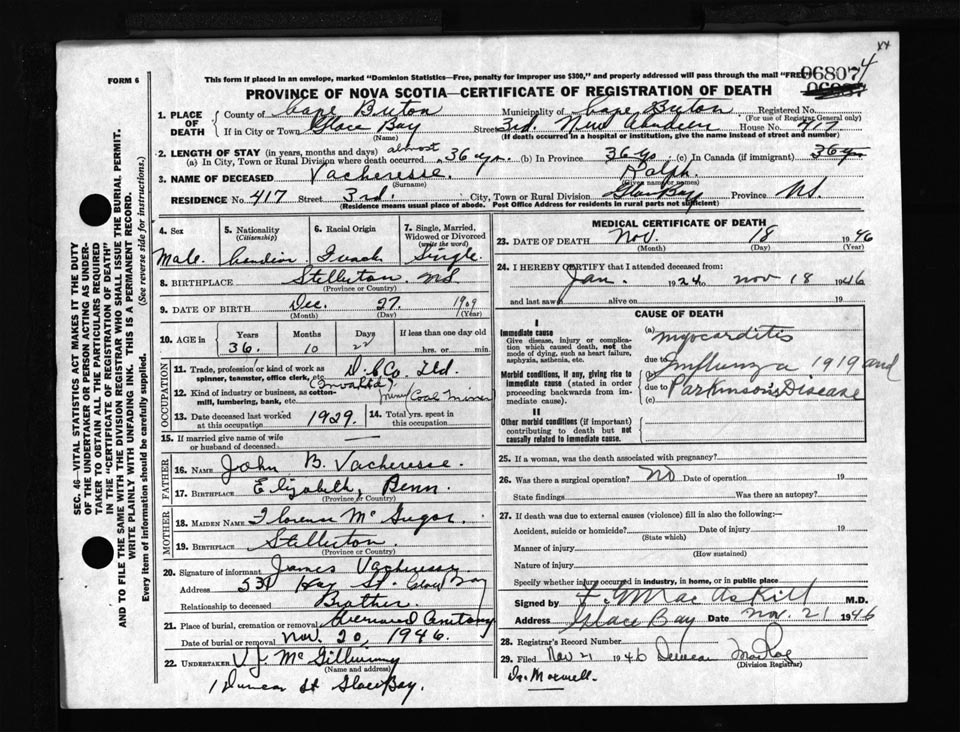 xx
FORM 6
This form if placed in an envelope, marked "Dominion Statistics—Free, penalty for improper use $300," and properly addressed will pass through the mail "FREE"
068074
06887
PROVINCE OF NOVA SCOTIA—CERTIFICATE OF REGISTRATION OF DEATH
1. PLACE OF DEATH
County of Cape Breton Municipality of Cape Breton Registered No.
(For use of Registrar General only)
If in City or Town Glace Bay Street 3rd. New House No. 417
(Name) (If death occurred in a hospital or institution, give the name instead of street and number)
2. LENGTH OF STAY (in years, months and days) almost
(a) In City, Town or Rural Division where death occurred 36 yrs. (b) In Province 36 yo (c) In Canada (if immigrant) 36 yo
3. NAME OF DECEASED Vacheresse. Ralph.
(Surname) (Given name or names)
RESIDENCE No. 417 Street 3rd. City, Town or Rural Division Glace Bay Province N.S.
(Residence means usual place of abode. Post Office Address for residents in rural parts not sufficient)
SEC. 46—VITAL STATISTICS ACT MAKES IT THE DUTY
OF THE UNDERTAKER OR PERSON ACTING AS UNDER-
TAKER TO OBTAIN ALL THE PARTICULARS REQUIRED
IN THE "CERTIFICATE OF REGISTRATION OF DEATH"
AND TO FILE THE SAME WITH THE DIVISION REGISTRAR WHO SHALL ISSUE THE BURIAL PERMIT.
WRITE PLAINLY WITH UNFADING INK. THIS IS A PERMANENT RECORD.
Every item of information should be carefully supplied. (See reverse side for instructions.)
4. Sex
5. Nationality
(Citizenship)
6. Racial Origin
7. Single, Married, Widowed or Divorced
(write the word)
Male. Canadian French Single.
8. BIRTHPLACE Stellerton N.S.
(Province or Country)
9. DATE OF BIRTH Dec. 27. 1909
(Month) (Day) (Year)
10. AGE in
Years Months Days If less than one day old
36. 10 22 hrs. or min.
OCCUPATION
11. Trade, profession or kind of work as spinner, teamster, office clerk, etc. D. & Co. Ltd.
(Invalid)
12. Kind of industry or business, as cotton-mill, lumbering, bank, etc. Coal Miner
13. Date deceased last worked at this occupation 1929. 14. Total yrs. spent in this occupation
15. If married give name of wife or husband of deceased —
FATHER
16. NAME John B. Vacheresse.
17. BIRTHPLACE Elizabeth, Benn.
(Province or Country)
MOTHER
18. MAIDEN NAME Florence McGregor.
19. BIRTHPLACE Stellerton.
(Province or Country)
20. Signature of informant James Vacheresse
Address 531 Hay St. Glace Bay
Relationship to deceased Brother.
21. Place of burial, cremation or removal Cemetery
Date of burial or removal Nov. 20, 1946.
22. UNDERTAKER V. J. McGillivray
(Name and address)
1 Duncan St Glace Bay.
MEDICAL CERTIFICATE OF DEATH
23. DATE OF DEATH Nov. 18 1946
(Month) (Day) (Year)
24. I HEREBY CERTIFY that I attended deceased from:
Jan. 1924 to Nov 18 1946
and last saw h alive on 19
CAUSE OF DEATH
I
Immediate cause
Give disease, injury or complication which caused death, not the mode of dying, such as heart failure, asphyxia, asthenia, etc.
(a) Myocarditis
due to
Morbid conditions, if any, giving rise to immediate cause (stated in order proceeding backwards from immediate cause).
(b) Influenza 1919 and
due to Parkinson's Disease
(c)
II
Other morbid conditions (if important) contributing to death but not causally related to immediate cause.
25. If a woman, was the death associated with pregnancy?
26. Was there a surgical operation? No Date of operation 19
State findings Was there an autopsy?
27. If death was due to external causes (violence) fill in also the following:—
Accident, suicide or homicide? Date of injury 19
(State which)
Manner of injury
(How sustained)
Nature of injury
Specify whether injury occurred in industry, in home, or in public place
Signed by MacAskill M.D.
Address Glace Bay Date Nov. 21 1946
28. Registrar's Record Number
29. Filed Nov 21 1946 Duncan
(Division Registrar)
Dr. Maxwell.